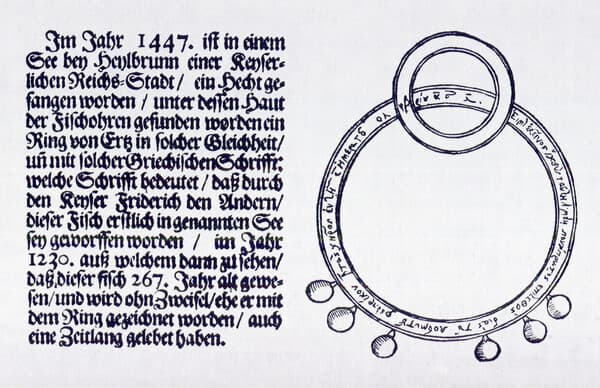 Im Jahr 1447. ist in einem
See bey Heylbrunn einer Keyser-
lichen Reichs-Stadt / ein Hecht ge-
fangen worden / unter dessen Haut
der Fischohren gefunden worden ein
Ring von Ertz in solcher Gleichheit/
uñ mit solcher Griechischen Schrifft:
welche Schrifft bedeutet / daß durch
den Keyser Friderich den Andern/
dieser Fisch erstlich in genannten See
sey geworffen worden / im Jahr
1230. auß welchem dann zu sehen/
daß dieser fisch 267. Jahr alt gewe-
sen/und wird ohn Zweifel/ehe er mit
dem Ring gezeichnet worden/ auch
eine Zeitlang gelebet haben.